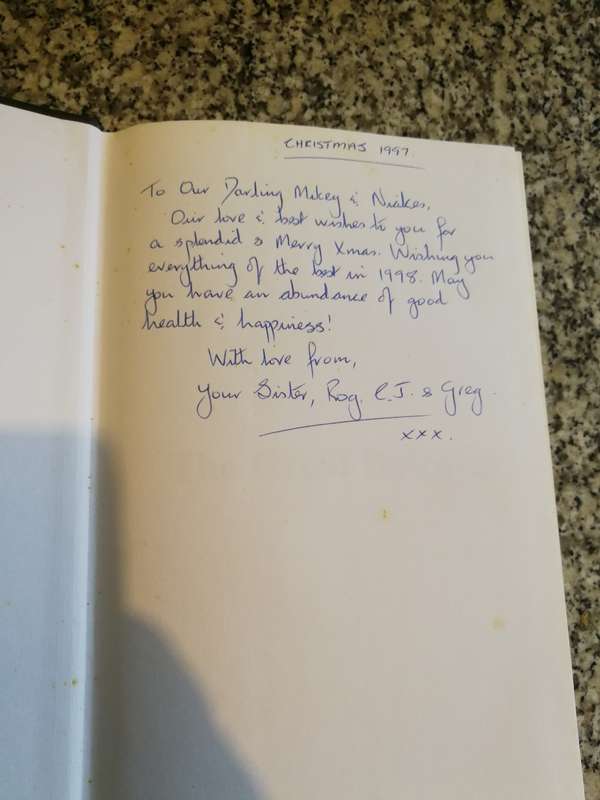 CHRISTMAS 1997.
To Our Darling Mikey &
Our love & best wishes to you for
a splendid & Merry Xmas. Wishing you
everything of the best in 1998. May
you have an abundance of good
health & happiness!
With love from,
Your Sister, Rog. C.J. & Greg.
xxx.